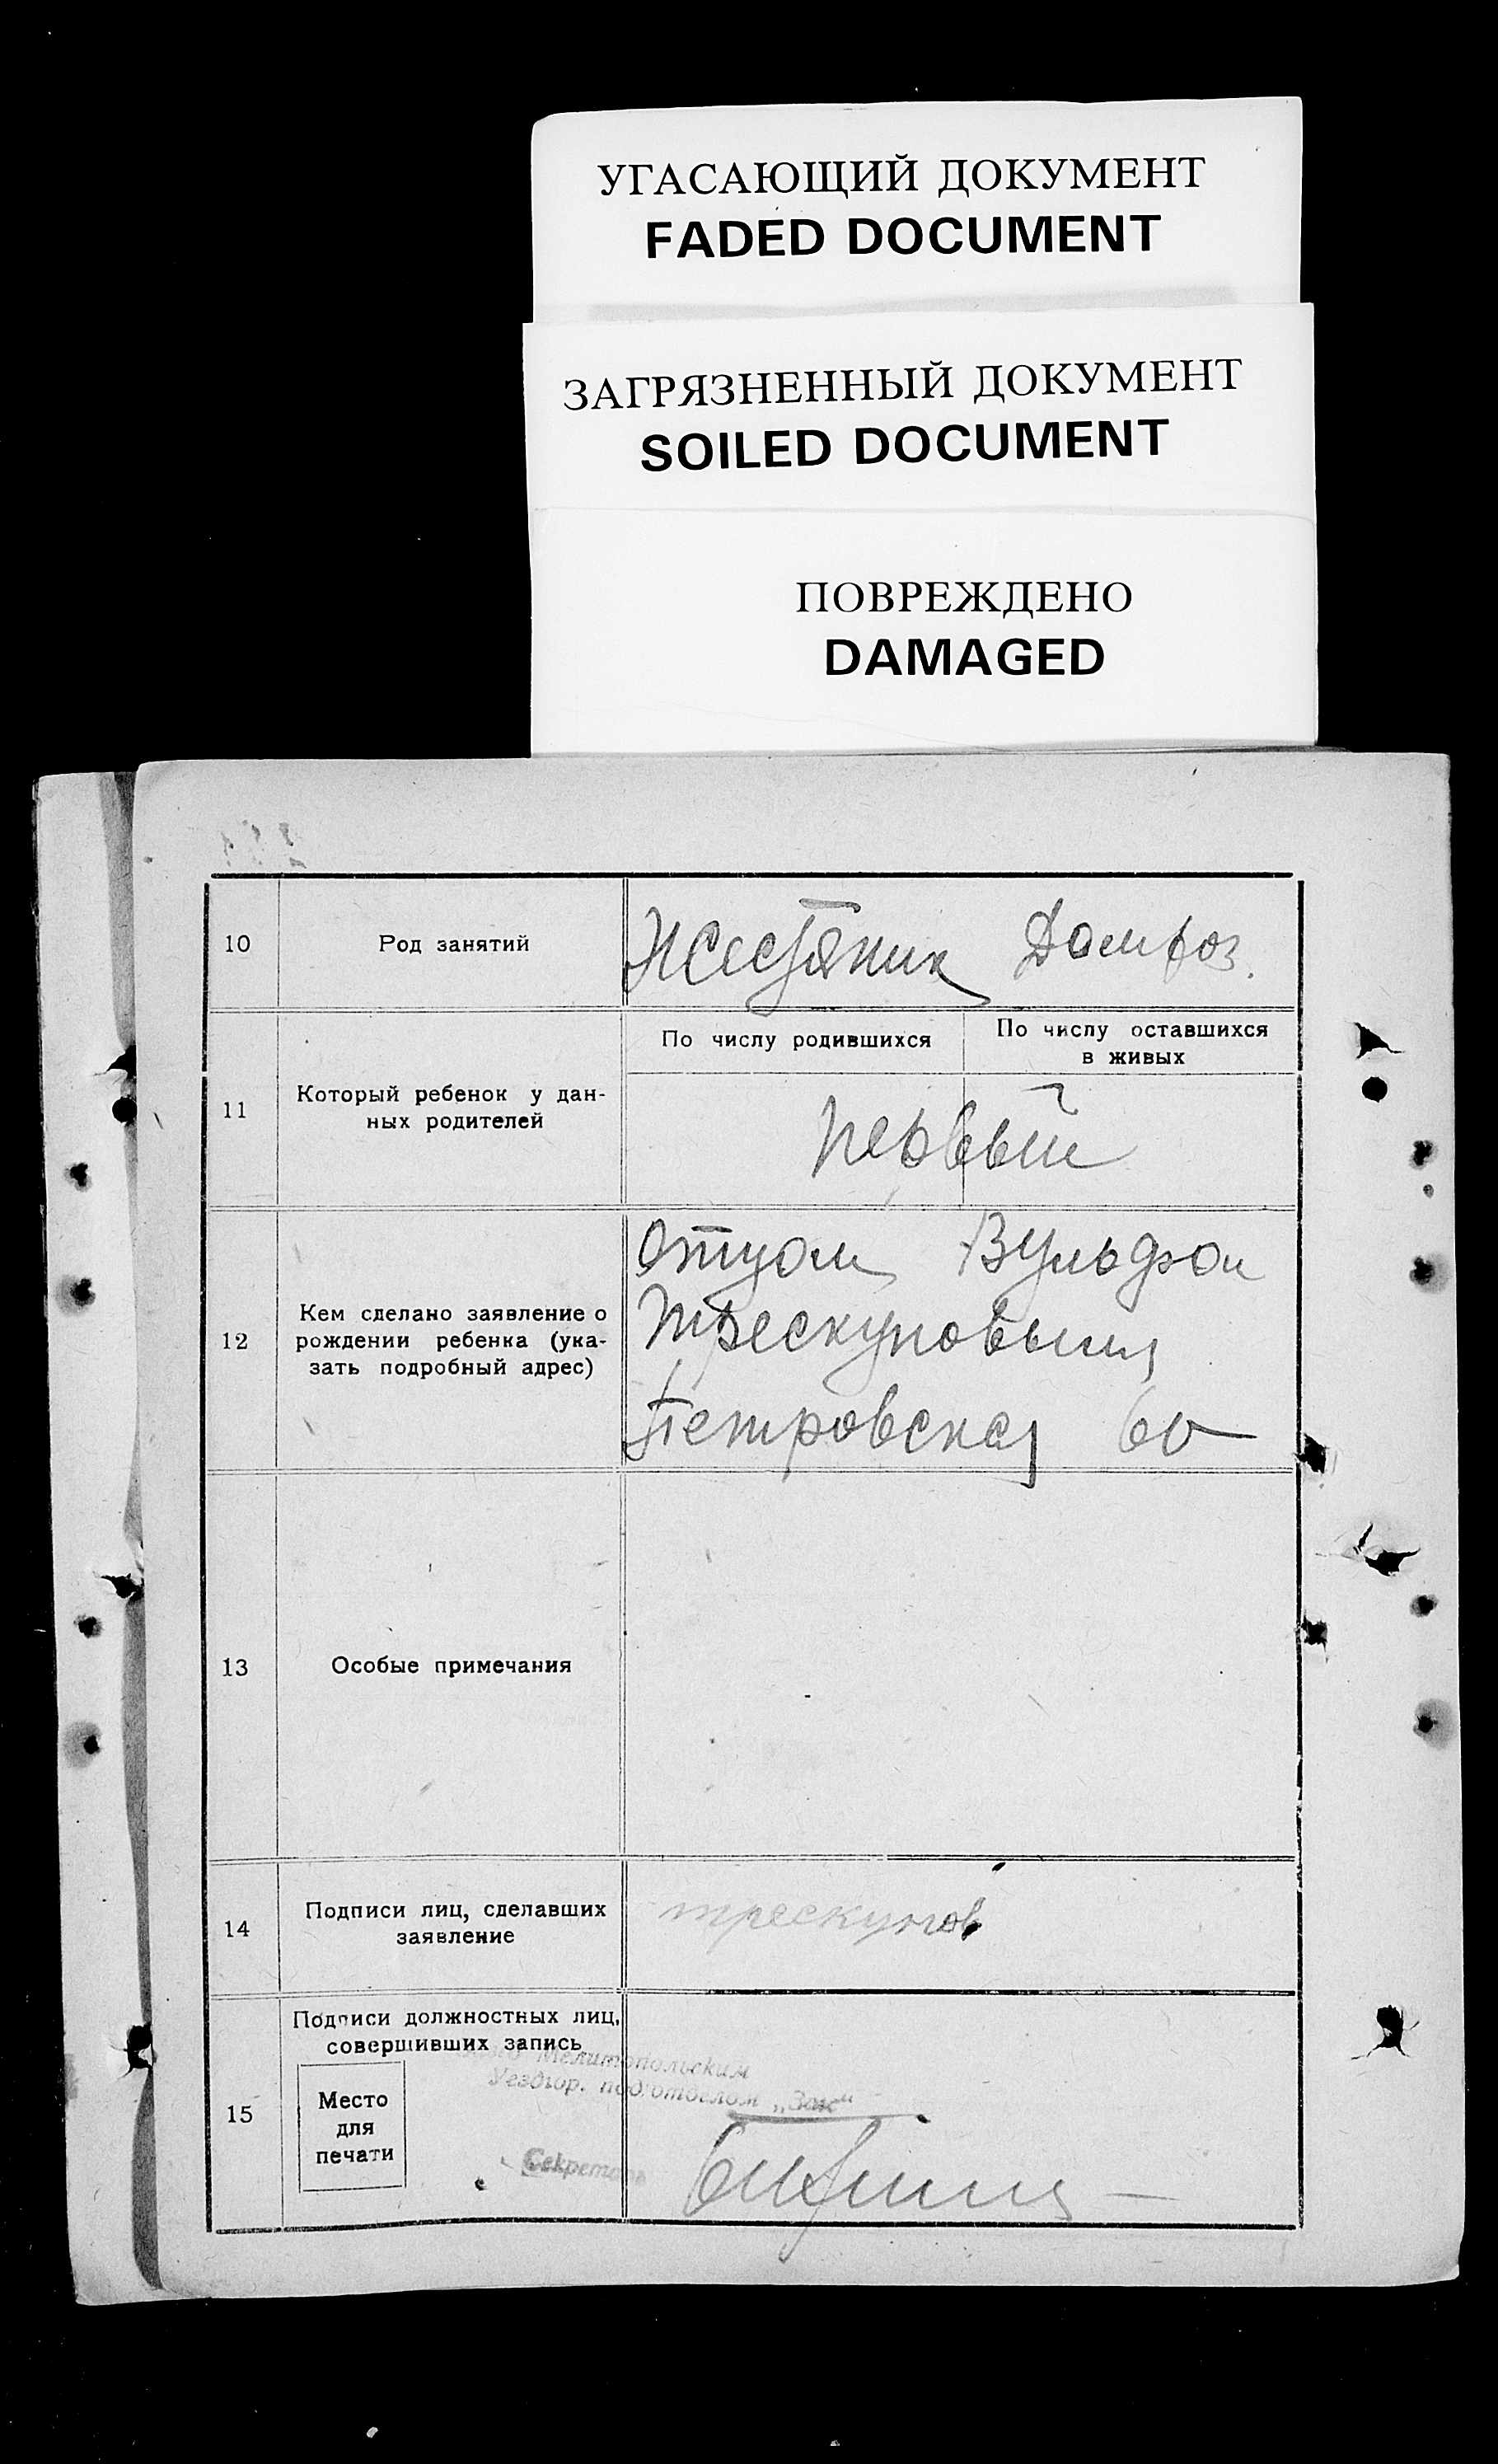 УГАСАЮЩИЙ ДОКУМЕНТ
FADED DOCUMENT
ЗАГРЯЗНЕННЫЙ ДОКУМЕНТ
SOILED DOCUMENT
ПОВРЕЖДЕНО
DAMAGED
10 Род занятий Жестяник Домхоз.
11 Который ребенок у дан-
ных родителей
По числу родившихся
По числу оставшихся
в живых
первый
12 Кем сделано заявление о
рождении ребенка (ука-
зать подробный адрес)
Отцом Вульфом
Трескуновым
Петровская 60
13 Особые примечания
14 Подписи лиц, сделавших
заявление
трескунов
15 Подписи должностных лиц,
совершивших запись
Место
для
печати
Мелитопольским
Уездгор. подотделом „Загс“
Секретарь